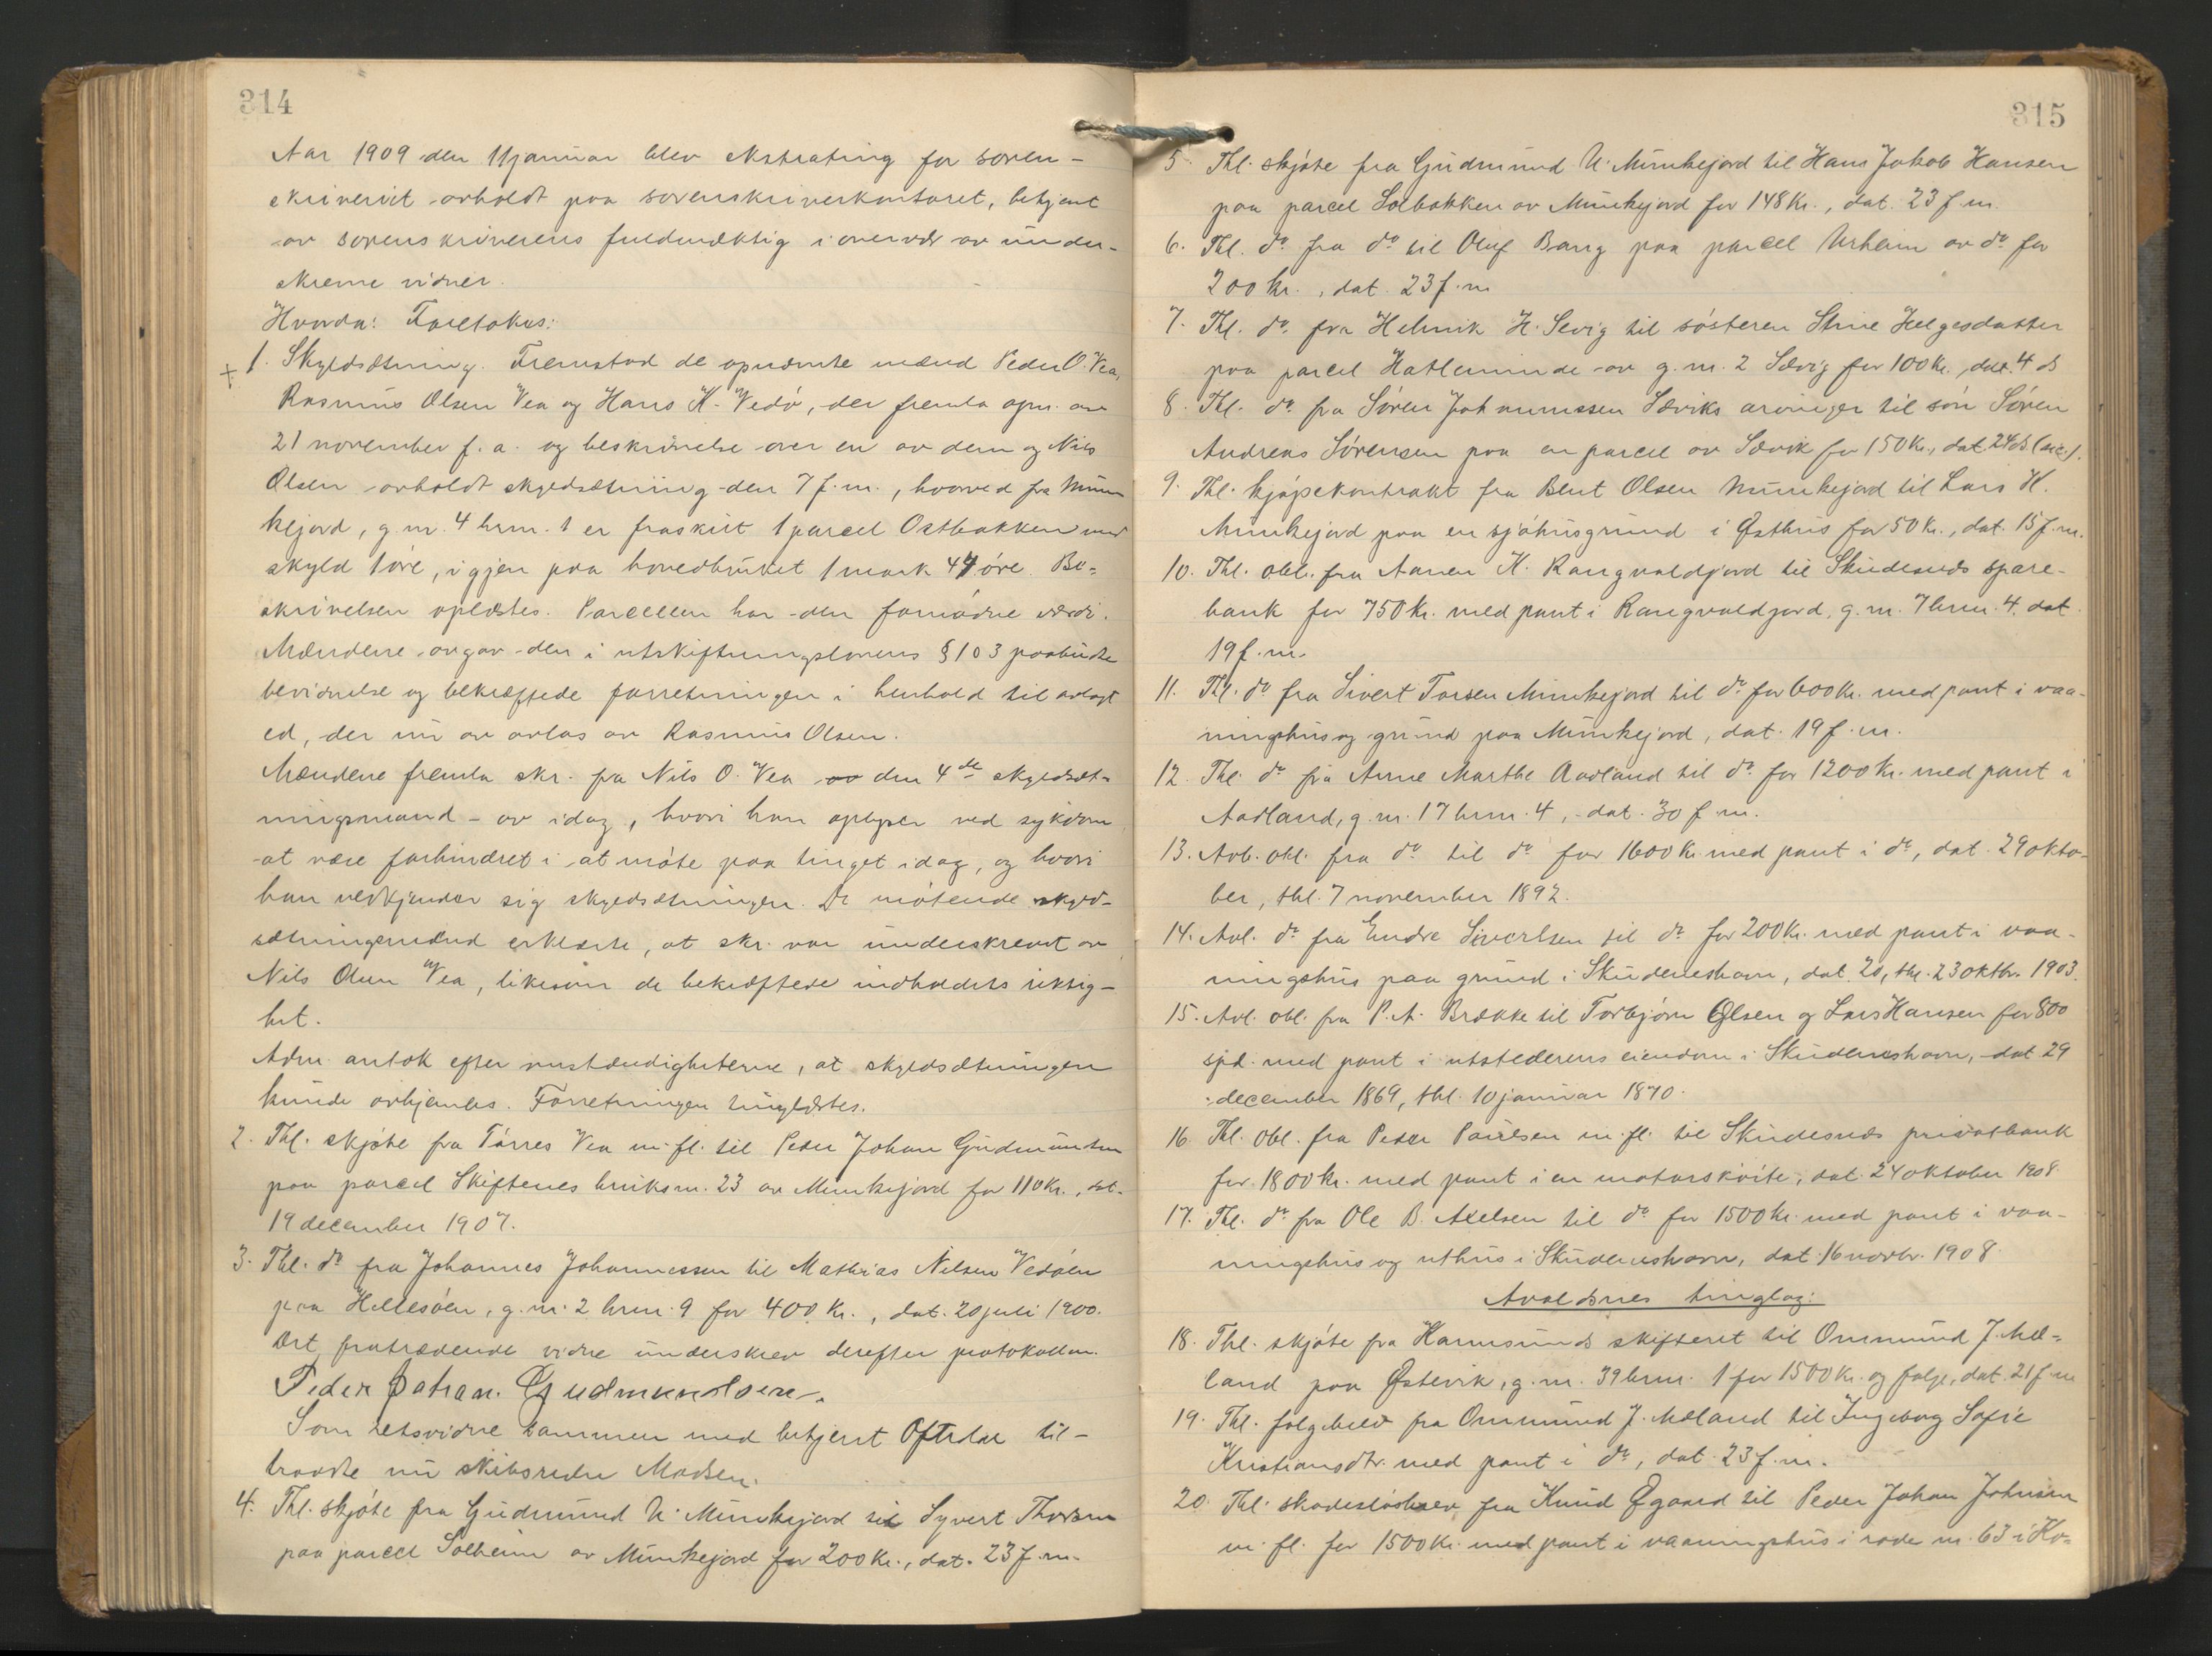 314
Aar 1909 den 11 januar blev ekstrating for soren-
skriveriet avholdt paa sorenskriverkontoret, betjent
av sorenskriverens fuldmæktig i overvær av under-
skrevne vidner.
Hvorda: Foretokes:
+ 1. Skyldsætning. Fremstod de opnævnte mænd Peder O. Vea,
Rasmus Olsen Vea og Hans K. Vedø, der fremla opn. av
21 november f. a. og beskrivelse over en av dem og Nils
Olsen avholdt skyldsætning den 7 f. m., hvorved fra Munke-
kejord, g. nr. 4 brnr. 1 er fraskilt 1 parcel Ostbakken med
skyld 1 øre, igjen paa hovedbruket 1 mark 47 øre. Be-
skrivelsen oplæstes. Parcellen har den fornødne værdi.
Mændene avgav den i utskiftningslovens § 103 paabudte
bevidnelse og bekræftede forretningen i henhold til avlagt
ed, der nu av avlas av Rasmus Olsen.
Mændene fremla skr. fra Nils O. Vea den 4de skyldsæt-
ningsmand - av idag, hvori han oplyser ved sykdom
at være forhindret i at møte paa tinget idag, og hvori
han vedkjender sig skyldsætningen. De møtende skyld-
sætningsmænd erklærte, at skr. var underskrevet av
Nils Olsen Vea, likesom de bekræftede indholdets riktig-
het.
Adm. antok efter omstændigheterne, at skyldsætningen
kunde avhjemles. Forretningen tinglæstes.
2. Thl. skjøte fra Tørres Vea m. fl. til Peder Johan Gudmundsen
paa parcel Skiftenes bruksnr. 23 av Munkejord for 110 kr., dat.
19 december 1907.
3. Thl. do fra Johannes Johannessen til Mathias Nilsen Vedøen
paa Hillesøen, g. nr. 2 brnr. 9 for 400 kr., dat. 20 juli 1900.
Det fratrædende vidne underskrev derefter protokollen.
Peder Johan. Gudmundsen.
Som retsvidne sammen med betjent Oftedal til-
traadte nu skibsreder Madsen.
4. Thl. skjøte fra Gudmund U. Munkejord til Syvert Thorsen
paa parcel Solheim av Munkejord for 200 kr., dat. 23 f. m.
315
5. Thl. skjøte fra Gudmund U. Munkejord til Hans Jakob Hansen
paa parcel Solbakken av Munkejord for 148 kr., dat. 23 f. m.
6. Thl. do fra do til Oluf Bang paa parcel Urheim av do for
200 kr., dat. 23 f. m
7. Thl. do fra Helmik H. Sevig til søsteren Stine Helgesdatter
paa parcel Hatleminde av g. nr. 2 Sævig for 100 kr., dat. 4 ds
8. Thl. do fra Søren Johannessen Sæviks arvinger til søn Søren
Andreas Sørensen paa en parcel av Sævik for 150 kr., dat. 24 ds. (sic).
9. Thl. kjøpekontrakt fra Blut Olsen Munkejord til Lars H.
Munkejord paa en sjøhusgrund i Østhus for 50 kr., dat. 15 f. m.
10. Thl. obl. fra Aanen K. Rangvaldjord til Skudesnæs spare-
bank for 750 kr. med pant i Rangvaldjord, g. nr. 7 brnr. 4. dat.
19 f. m.
11. Thl. do fra Sivert Torsen Munkejord til do for 600 kr. med pant i vaa-
ningshus og grund paa Munkejord, dat. 19 f. m.
12. Thl. do fra Anne Marthe Aadland til do for 1200 kr. med pant i
Aadland, g. nr. 17 brnr. 4, dat. 30 f. m.
13. Avl. obl. fra do til do for 1600 kr. med pant i do, dat. 29 okto-
ber, thl. 7 november 1892.
14. Avl. do fra Endre Sivertsen til do for 200 kr. med pant i vaa-
ningshus paa grund i Skudeneshavn, dat. 20, thl. 23 oktbr. 1903.
15. Avl. obl. fra P. A. Brække til Torbjørn Olsen og Lars Hansen for 800
spd. med pant i utstederens eiendom i Skudeneshavn, dat 29
december 1869, thl. 10 januar 1870.
16. Thl. obl. fra Peder Paulsen m. fl. til Skudesnæs privatbank
for 1800 kr. med pant i en motorskøite, dat. 24 oktober 1908.
17. Thl. do fra Ole B. Axelsen til do for 1500 kr. med pant i vaa-
ningshus og uthus i Skudeneshavn, dat. 16 novbr. 1908.
Avaldsnes tinglag:
18. Thl. skjøte fra Karmsunds skifteret til Ommund J. Mæ-
land paa Østevik, g. nr. 39 brnr. 1 for 1500 kr. og følge, dat. 21 f. m
19. Thl. følgebrev fra Ommund J. Mæland til Ingeborg Sofie
Kristiansdtr. med pant i do, dat. 23 f. m.
20. Thl. skadesløsbrev fra Knud Øgaard til Peder Johan Johnsen
m. fl. for 1500 kr. med pant i vaaningshus i rode nr. 63 i Ko-